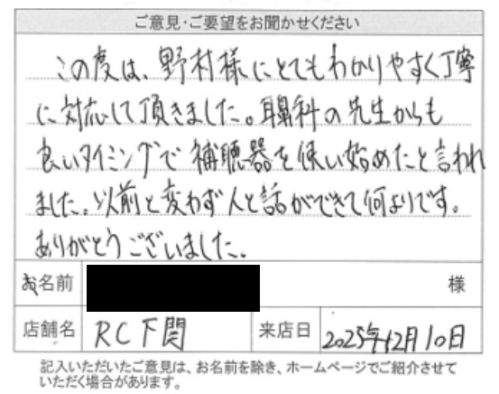 ご意見・ご要望をお聞かせください
この度は、野村様にとてもわかりやすく丁寧
に対応して頂きました。耳鼻科の先生からも
良いタイミングで補聴器を使い始めたと言われ
ました。以前と変わず人と話ができて何よりです。
ありがとうございました。
お名前 様
店舗名 RC下関 来店日 2025年12月10日
記入いただいたご意見は、お名前を除き、ホームページでご紹介させて
いただく場合があります。